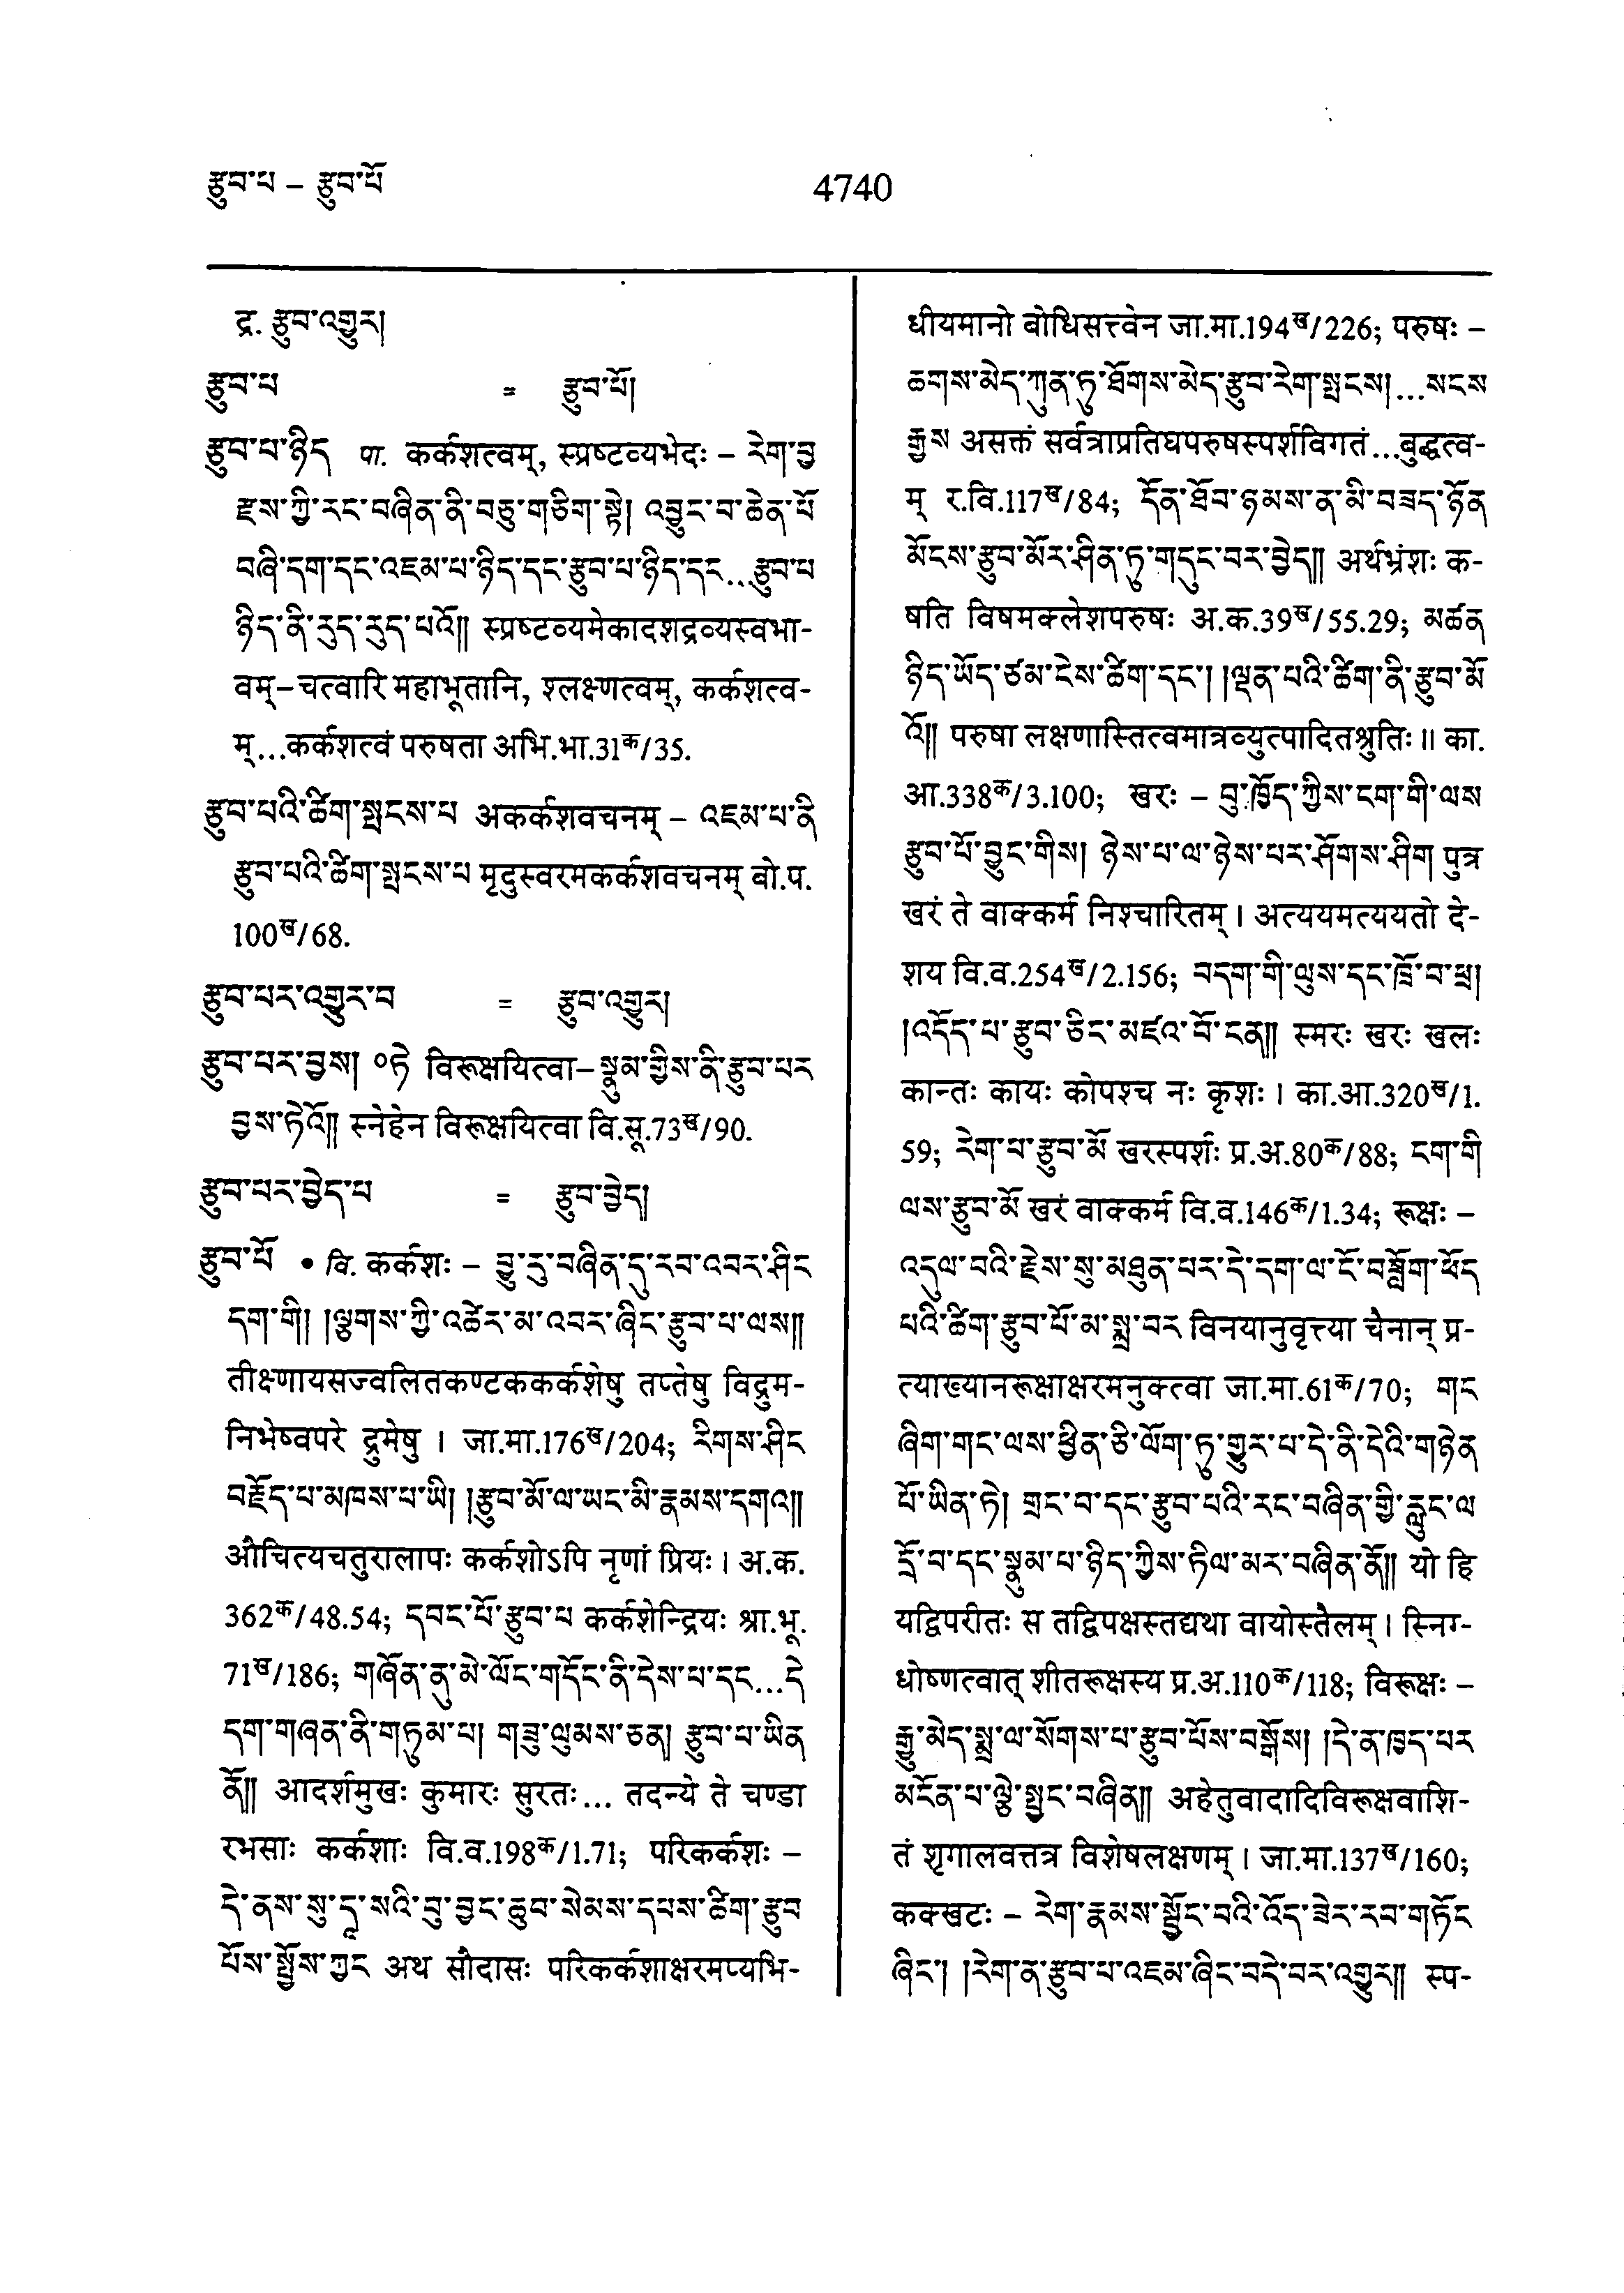 རྩུབ་པ – རྩུབ་པོ
4740
द्र. རྩུབ་འགྱུར།
རྩུབ་པ = རྩུབ་པོ།
རྩུབ་པ་ཉིད पा. कर्कशत्वम्, स्प्रष्टव्यभेदः – རེག་བྱ
རྫས་ཀྱི་རང་བཞིན་ནི་བཅུ་གཅིག་སྟེ། འབྱུང་བ་ཆེན་པོ
བཞི་དག་དང་འཇམ་པ་ཉིད་དང་རྩུབ་པ་ཉིད་དང...རྩུབ་པ
ཉིད་ནི་རུད་རུད་པའོ།། स्प्रष्टव्यमेकादशद्रव्यस्वभा-
वम्–चत्वारि महाभूतानि, श्लक्ष्णत्वम्, कर्कशत्व-
म्...कर्कशत्वं परुषता अभि.भा.31क/35.
རྩུབ་པའི་ཚིག་སྤངས་པ अकर्कशवचनम् – འཇམ་པ་ནི
རྩུབ་པའི་ཚིག་སྤངས་པ मृदुस्वरमकर्कशवचनम् बो.प.
100ख/68.
རྩུབ་པར་འགྱུར་བ = རྩུབ་འགྱུར།
རྩུབ་པར་བྱས། ०ཏེ विरूक्षयित्वा–སྣུམ་གྱིས་ནི་རྩུབ་པར
བྱས་ཏེའོ།། स्नेहेन विरूक्षयित्वा वि.सू.73ख/90.
རྩུབ་པར་བྱེད་པ = རྩུབ་བྱེད།
རྩུབ་པོ • वि. कर्कशः – བྱུ་རུ་བཞིན་དུ་རབ་འབར་ཤིང
དག་གི། །ལྕགས་ཀྱི་འཚེར་མ་འབར་ཞིང་རྩུབ་པ་ལས།།
तीक्ष्णायसज्वलितकण्टककर्कशेषु तप्तेषु विद्रुम-
निभेष्वपरे द्रुमेषु । जा.मा.176ख/204; རིགས་ཤིང
བརྗོད་པ་མཁས་པ་ཡི། །རྩུབ་མོ་ལ་ཡང་མི་རྣམས་དགའ།།
औचित्यचतुरालापः कर्कशोऽपि नृणां प्रियः । अ.क.
362क/48.54; དབང་པོ་རྩུབ་པ कर्कशेन्द्रियः श्रा.भू.
71ख/186; གཞོན་ནུ་མེ་ལོང་གདོང་ནི་དེས་པ་དང...དེ
དག་གཞན་ནི་གཏུམ་པ། གཟུ་ལུམས་ཅན། རྩུབ་པ་ཡིན
ནོ།། आदर्शमुखः कुमारः सुरतः... तदन्ये ते चण्डा
रभसाः कर्कशाः वि.व.198क/1.71; परिकर्कशः –
དེ་ནས་སུ་དཱ་སའི་བུ་བྱང་ཆུབ་སེམས་དཔས་ཚིག་རྩུབ
པོས་སྤྱོས་ཀྱང अथ सौदासः परिकर्कशाक्षरमप्यभि-
धीयमानो बोधिसत्त्वेन जा.मा.194ख/226; परुषः –
ཆགས་མེད་ཀུན་ཏུ་ཐོགས་མེད་རྩུབ་རེག་སྤངས།...སངས
རྒྱས असक्तं सर्वत्राप्रतिघपरुषस्पर्शविगतं...बुद्धत्व-
म् र.वि.117ख/84; དོན་ཐོབ་ཉམས་ན་མི་བཟད་ཉོན
མོངས་རྩུབ་མོར་ཤིན་ཏུ་གདུང་བར་བྱེད།། अर्थभ्रंशः क-
षति विषमक्लेशपरुषः अ.क.39ख/55.29; མཚན
ཉིད་ཡོད་ཙམ་ངེས་ཚིག་དང་། །ལྡན་པའི་ཚིག་ནི་རྩུབ་མོ
འོ།། परुषा लक्षणास्तित्वमात्रव्युत्पादितश्रुतिः ॥ का.
आ.338क/3.100; खरः – བུ་ཁྱོད་ཀྱིས་ངག་གི་ལས
རྩུབ་པོ་བྱུང་གིས། ཉེས་པ་ལ་ཉེས་པར་ཤོགས་ཤིག पुत्र
खरं ते वाक्कर्म निश्चारितम् । अत्ययमत्ययतो दे-
शय वि.व.254ख/2.156; བདག་གི་ལུས་དང་ཁྲོ་བ་ཕྲ།
།འདོད་པ་རྩུབ་ཅིང་མཛའ་བོ་ངན།། स्मरः खरः खलः
कान्तः कायः कोपश्च नः कृशः । का.आ.320ख/1.
59; རེག་པ་རྩུབ་མོ खरस्पर्शः प्र.अ.80क/88; ངག་གི
ལས་རྩུབ་མོ खरं वाक्कर्म वि.व.146क/1.34; रूक्षः –
འདུལ་བའི་རྗེས་སུ་མཐུན་པར་དེ་དག་ལ་ངོ་བཟློག་ཕོད
པའི་ཚིག་རྩུབ་པོ་མ་སྨྲ་བར विनयानुवृत्त्या चैनान् प्र-
त्याख्यानरूक्षाक्षरमनुक्त्वा जा.मा.61क/70; གང
ཞིག་གང་ལས་ཕྱིན་ཅི་ལོག་ཏུ་གྱུར་པ་དེ་ནི་དེའི་གཉེན
པོ་ཡིན་ཏེ། གྲང་བ་དང་རྩུབ་པའི་རང་བཞིན་གྱི་རླུང་ལ
དྲོ་བ་དང་སྣུམ་པ་ཉིད་ཀྱིས་ཏིལ་མར་བཞིན་ནོ།། यो हि
यद्विपरीतः स तद्विपक्षस्तद्यथा वायोस्तैलम् । स्निग-
धोष्णत्वात् शीतरूक्षस्य प्र.अ.110क/118; विरूक्षः –
རྒྱུ་མེད་སྨྲ་ལ་སོགས་པ་རྩུབ་པོས་བསྒོས། །དེ་ན་ཁྱད་པར
མངོན་པ་ལྕེ་སྤྱང་བཞིན།། अहेतुवादादिविरूक्षवाशि-
तं शृगालवत्तत्र विशेषलक्षणम् । जा.मा.137ख/160;
कक्खटः – རེག་རྣམས་སྦྱོང་བའི་འོད་ཟེར་རབ་གཏོང
ཞིང་། །རེག་ན་རྩུབ་པ་འཇམ་ཞིང་བདེ་བར་འགྱུར།། स्प-